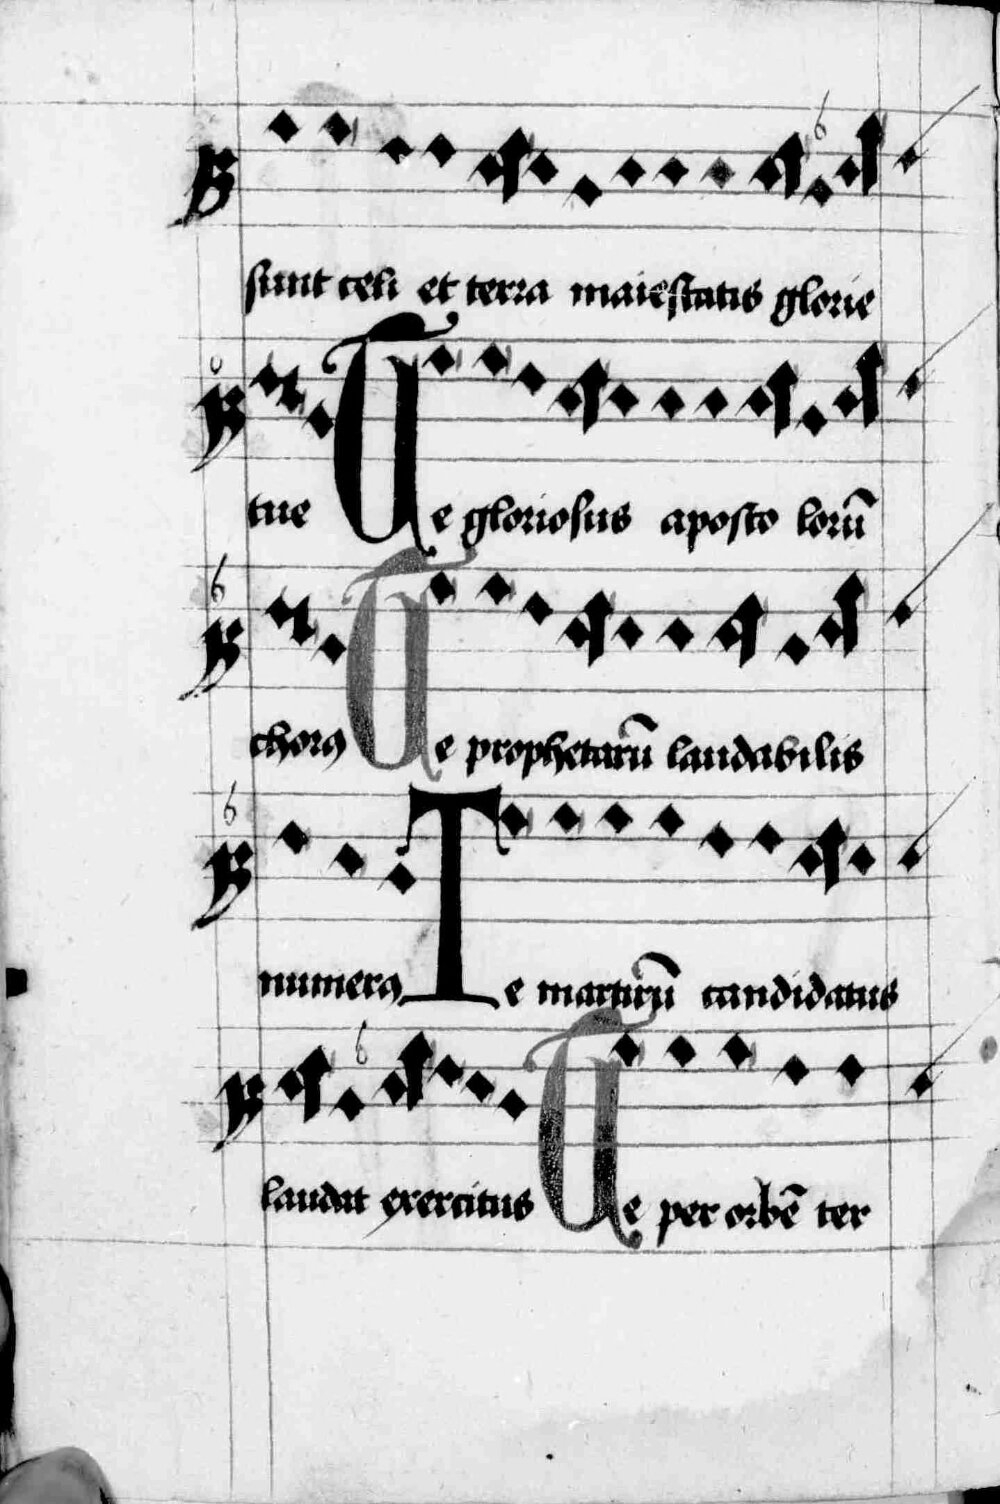 sunt celi et terra maiestatis glorie
tue Te gloriosus aposto lorū
chorꝰ Te prophetarū laudabilis
numerꝰ Te martirū candidatus
laudat exercitus Te per orbē ter